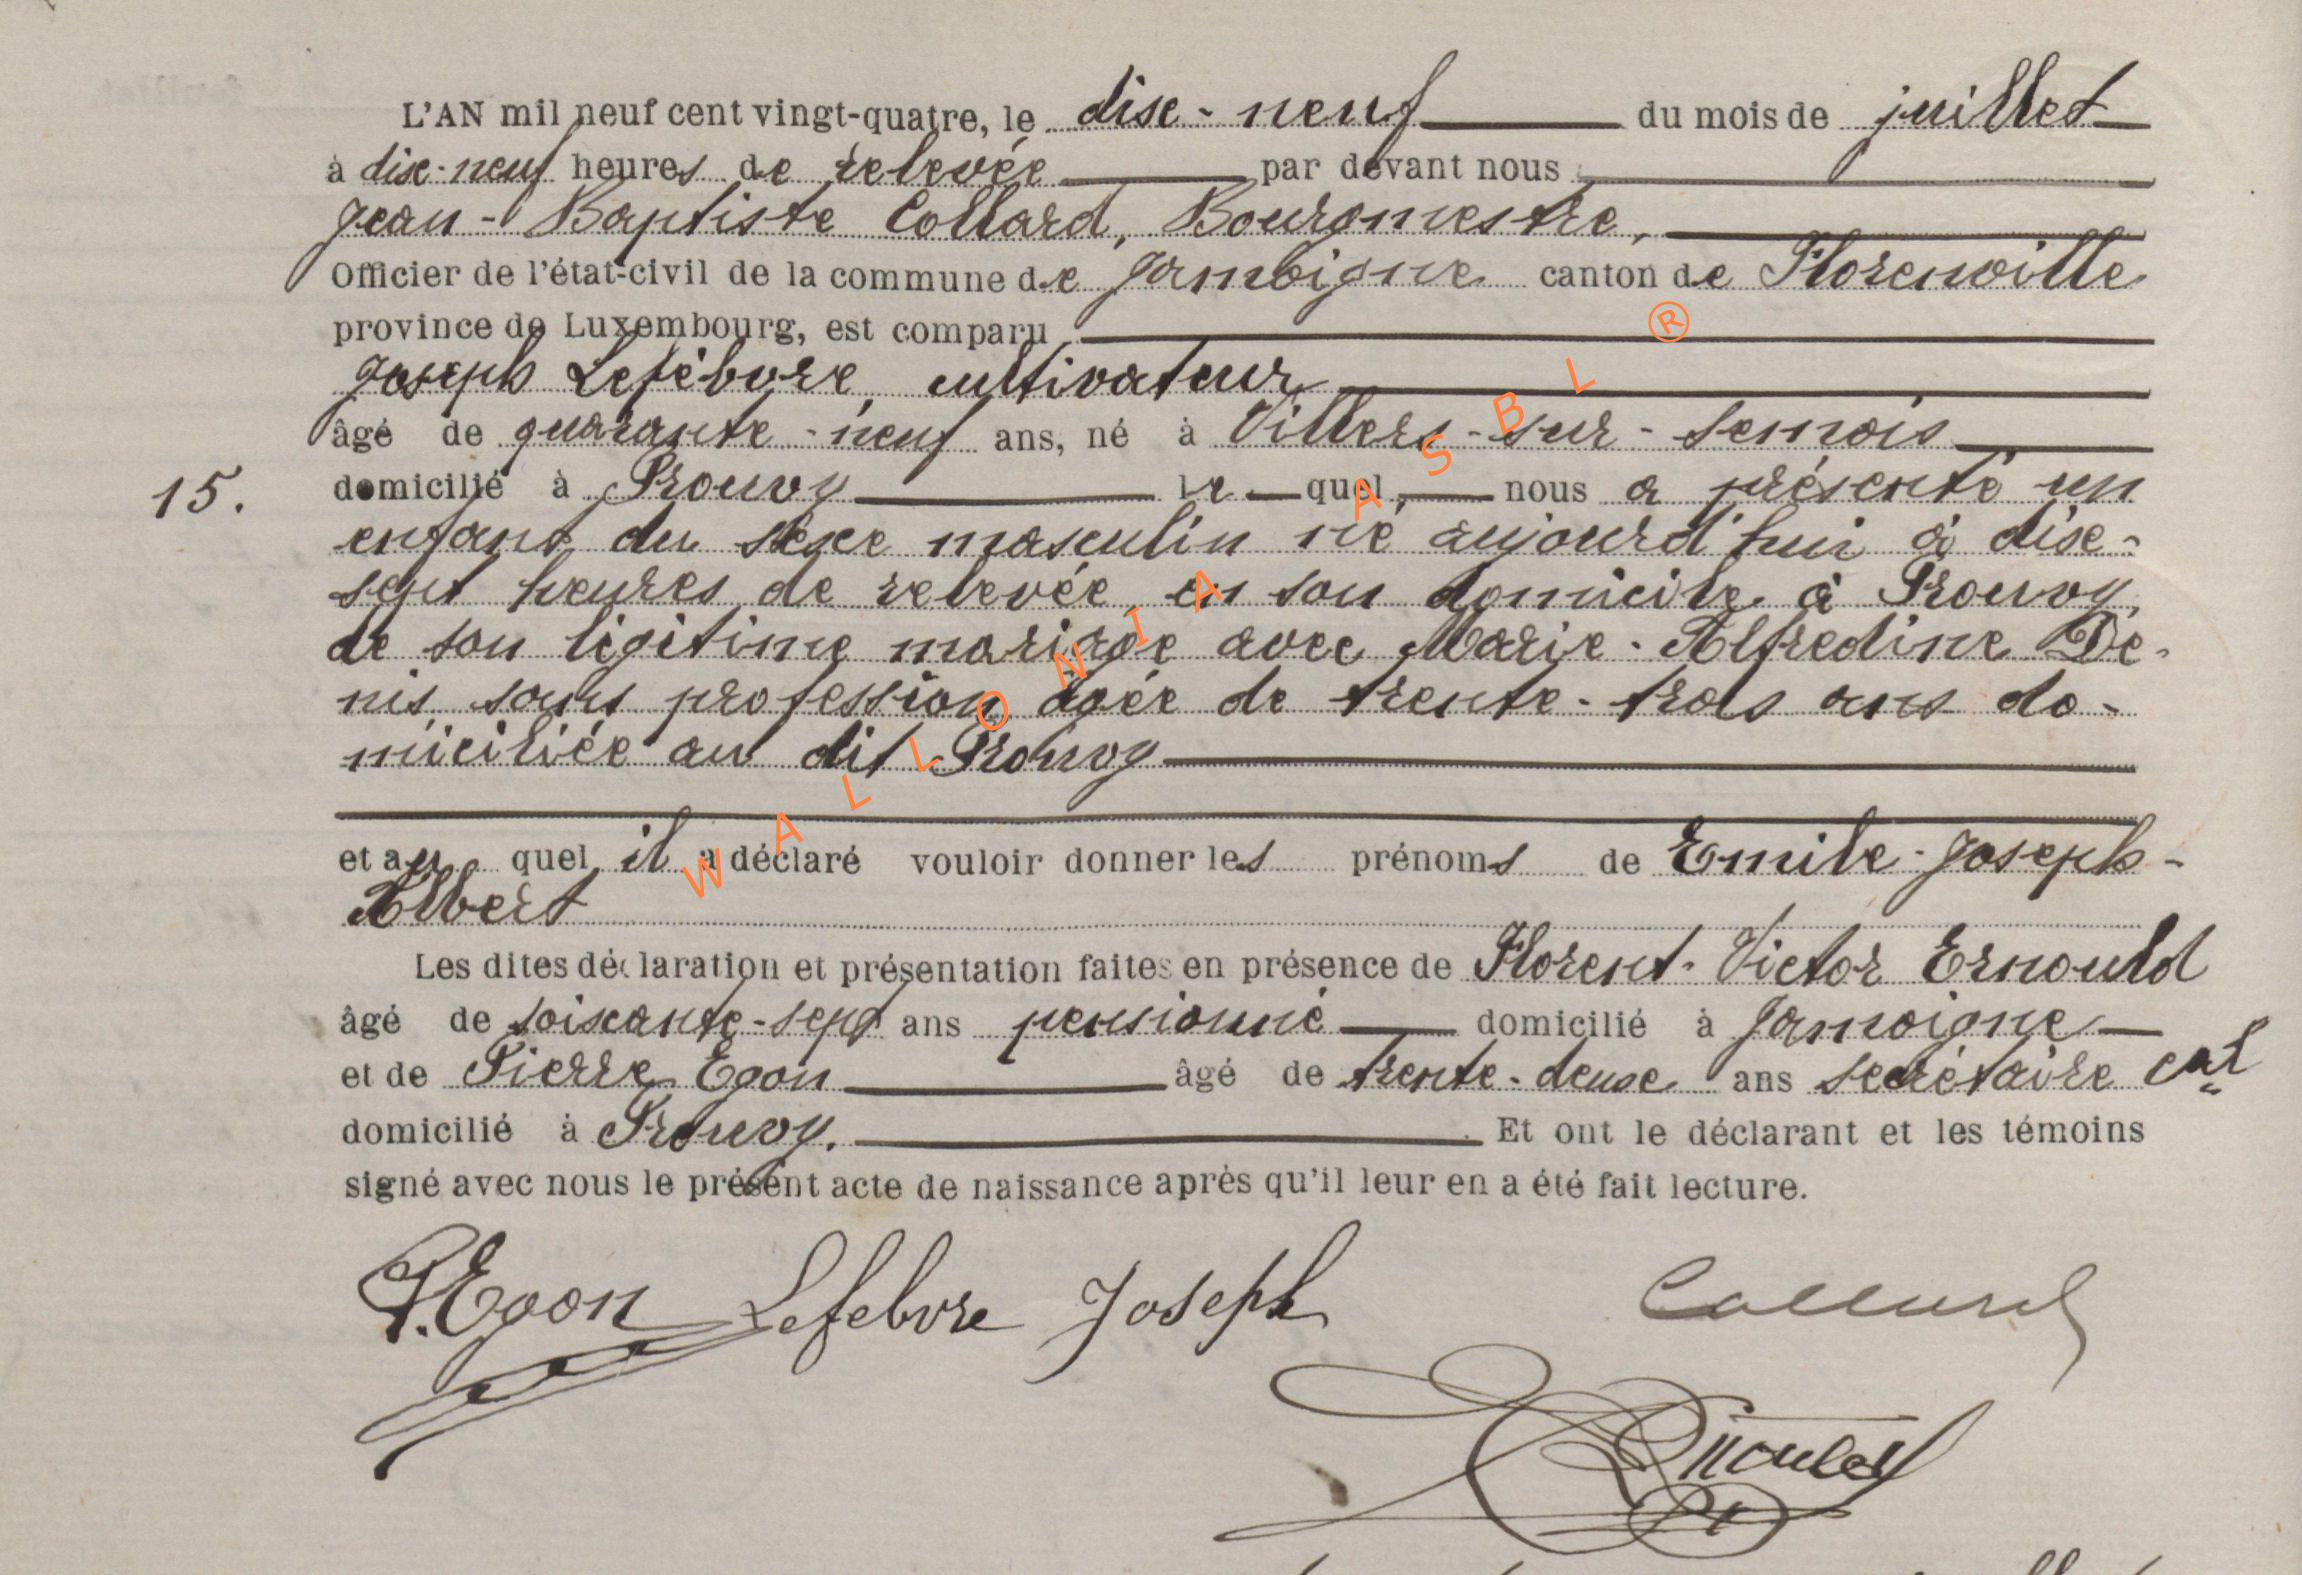 L'AN mil neuf cent vingt-quatre, le dix-neuf du mois de juillet
à dix-neuf heures de relevée par devant nous
Jean-Baptiste Collard, Bourgmestre,
Officier de l'état-civil de la commune de Jamoigne canton de Florenville
province de Luxembourg, est comparu
Joseph Lefèbvre, cultivateur
âgé de quarante-neuf ans, né à Villers-sur-Semois
15. domicilié à Prouvy le quel, nous a présenté un
enfant du sexe masculin né aujourd'hui à dix-
sept heures de relevée, en son domicile à Prouvy,
de son légitime mariage avec Marie-Alfredine De-
nis, sans profession âgée de trente-trois ans do-
miciliée au dit Prouvy
et au quel il a déclaré vouloir donner les prénoms de Emile-Joseph-
Albert
Les dites déclaration et présentation faites en présence de Florent-Victor Ernould
âgé de soixante-sept ans pensionné domicilié à Jamoigne
et de Pierre Egon âgé de trente-deux ans secrétaire cal
domicilié à Prouvy. Et ont le déclarant et les témoins
signé avec nous le présent acte de naissance après qu'il leur en a été fait lecture.
P. Egon Lefebvre Joseph Collard
Ernould
WALLONIA ASBL ®